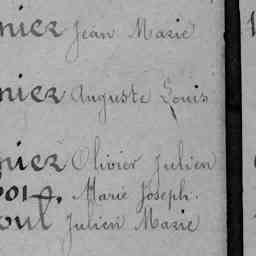 nier Jean Marie
nier Auguste Louis
nier Olivier Julien
Marie Joseph.
oul Julien Marie